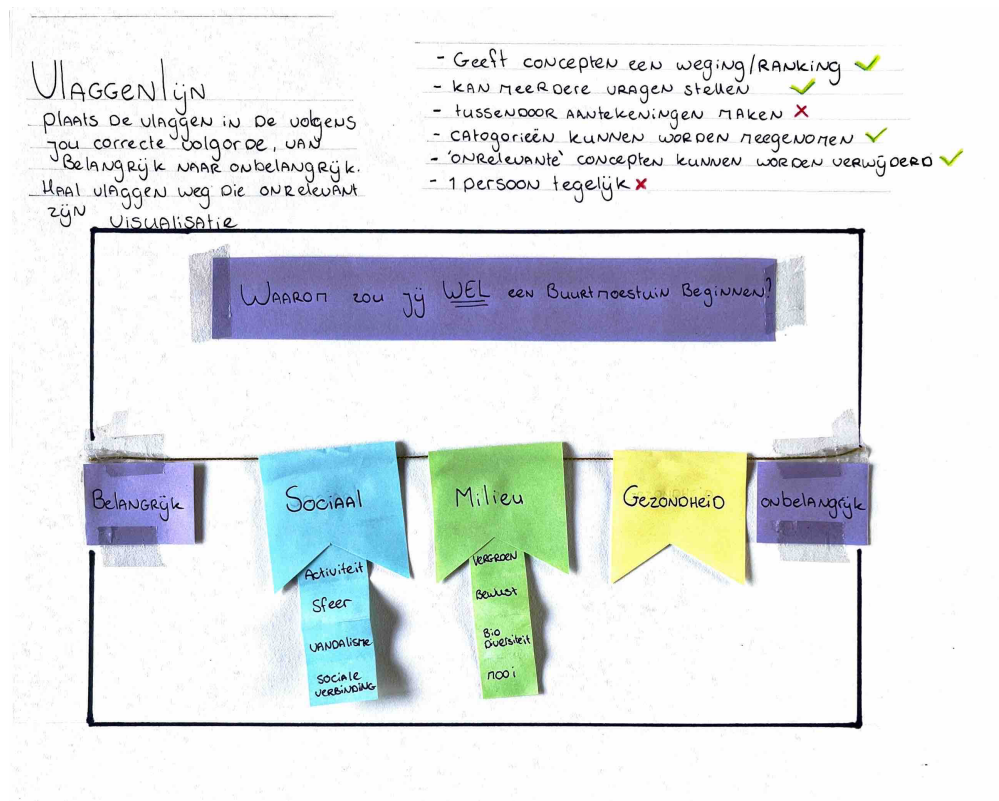 Vlaggenlijn
Plaats de vlaggen in de volgens
jou correcte volgorde, van
belangrijk naar onbelangrijk.
Haal vlaggen weg die onrelevant
zijn
Visualisatie
- Geeft concepten een weging/ranking ✓
- Kan meerdere vragen stellen ✓
- tussendoor aantekeningen maken ✗
- Catogorieën kunnen worden meegenomen ✓
- 'onrelevante' concepten kunnen worden verwijderd ✓
- 1 persoon tegelijk ✗
Waarom zou jij WEL een Buurtmoestuin Beginnen?
Belangrijk
Sociaal
Activiteit
Sfeer
Vandalisme
Sociale
verbinding
Milieu
Vergroen
Bewust
Bio
Diversiteit
mooi
Gezondheid
onbelangrijk